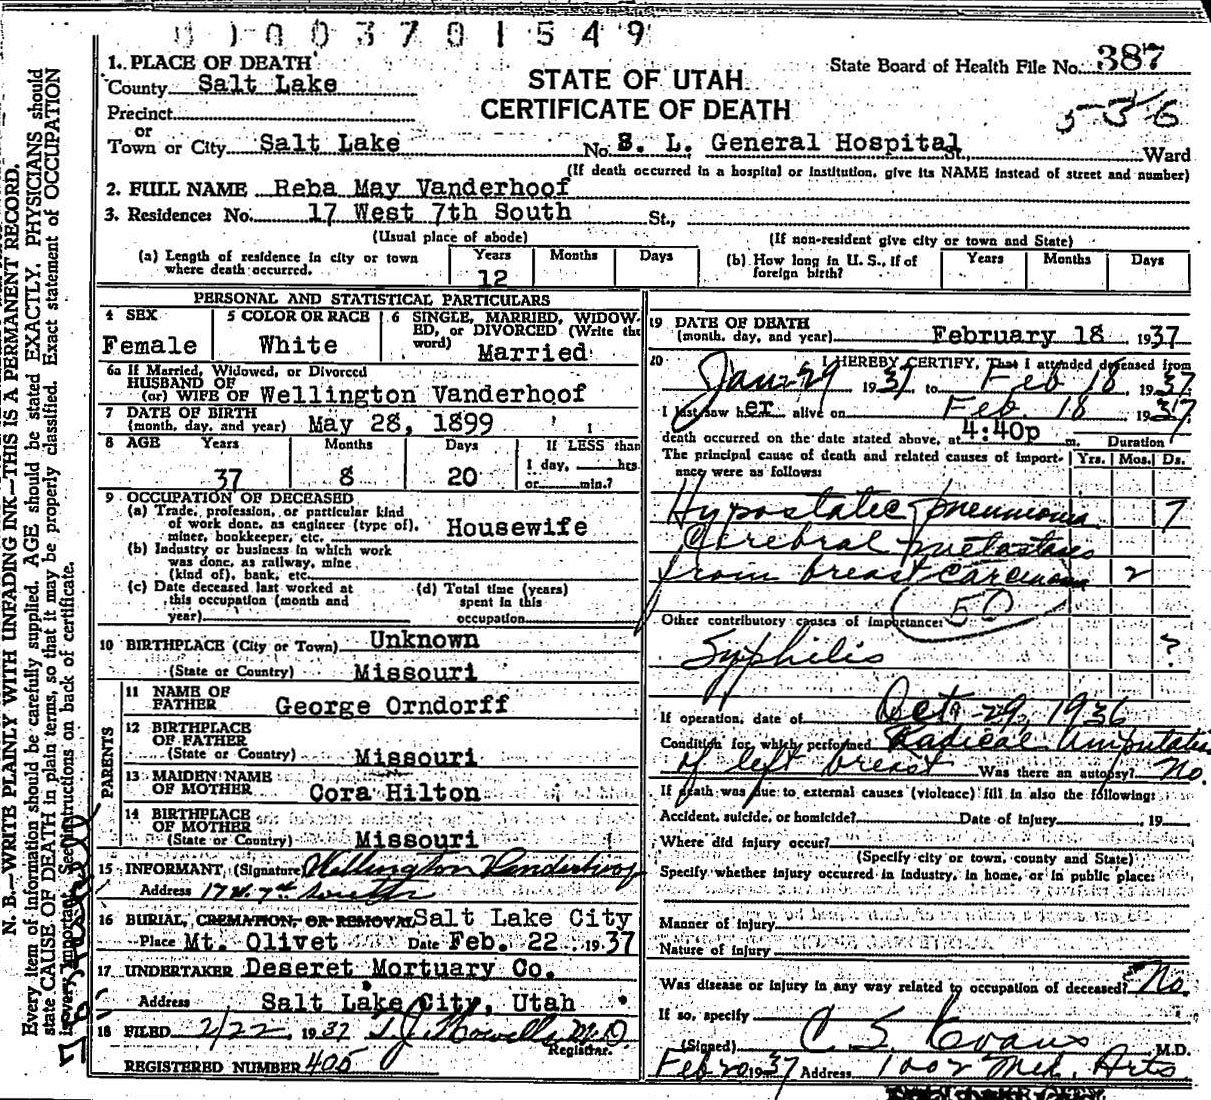 N. B.—WRITE PLAINLY WITH UNFADING INK—THIS IS A PERMANENT RECORD.
Every item of information should be carefully supplied. AGE should be stated EXACTLY. PHYSICIANS should
state CAUSE OF DEATH in plain terms, so that it may be properly classified. Exact statement of OCCUPATION
is very important. See instructions on back of certificate.
0 1 0 0 3 7 0 1 5 4 9
1. PLACE OF DEATH
County Salt Lake
Precinct
or
Town or City Salt Lake
STATE OF UTAH
CERTIFICATE OF DEATH
State Board of Health File No. 387
536
No. S. L. General Hospital St., Ward
(If death occurred in a hospital or institution, give its NAME instead of street and number)
2. FULL NAME Reba May Vanderhoof
3. Residence: No. 17 West 7th South St.,
(Usual place of abode) (If non-resident give city or town and State)
(a) Length of residence in city or town where death occurred. Years 12 Months Days
(b) How long in U. S., if of foreign birth? Years Months Days
PERSONAL AND STATISTICAL PARTICULARS
4 SEX Female
5 COLOR OR RACE White
6 SINGLE, MARRIED, WIDOWED, or DIVORCED (Write the word) Married
6a If Married, Widowed, or Divorced
HUSBAND OF
(or) WIFE OF Wellington Vanderhoof
7 DATE OF BIRTH
(month, day, and year) May 28, 1899
8 AGE Years 37 Months 8 Days 20 If LESS than 1 day, hrs. or min.?
9 OCCUPATION OF DECEASED
(a) Trade, profession, or particular kind of work done, as engineer (type of), miner, bookkeeper, etc. Housewife
(b) Industry or business in which work was done, as railway, mine (kind of), bank, etc.
(c) Date deceased last worked at this occupation (month and year)
(d) Total time (years) spent in this occupation
10 BIRTHPLACE (City or Town) Unknown
(State or Country) Missouri
PARENTS
11 NAME OF FATHER George Orndorff
12 BIRTHPLACE OF FATHER
(State or Country) Missouri
13 MAIDEN NAME OF MOTHER Cora Hilton
14 BIRTHPLACE OF MOTHER
(State or Country) Missouri
15 INFORMANT, (Signature) Wellington Vanderhoof
Address 17 W. 7th South
16 BURIAL, CREMATION, OR REMOVAL Salt Lake City
Place Mt. Olivet Date Feb. 22, 1937
17 UNDERTAKER Deseret Mortuary Co.
Address Salt Lake City, Utah
18 FILED 2/22, 1937 T J Howells M.D.
Registrar.
REGISTERED NUMBER 405
19 DATE OF DEATH
(month, day, and year) February 18, 1937
20 I HEREBY CERTIFY, That I attended deceased from
Jan 29 1937 to Feb 18, 1937
I last saw her alive on Feb. 18 1937
death occurred on the date stated above, at 4:40p m. Duration
The principal cause of death and related causes of importance were as follows: Yrs. Mos. Ds.
Hypostatic pneumonia 7
Cerebral metastases
from breast carcinoma 2
50
Other contributory causes of importance:
Syphilis ?
If operation, date of Oct. 29, 1936
Condition for which performed Radical Amputation
of left breast Was there an autopsy? No.
If death was due to external causes (violence) fill in also the following:
Accident, suicide, or homicide? Date of injury , 19
Where did injury occur?
(Specify city or town, county and State)
Specify whether injury occurred in industry, in home, or in public place:
Manner of injury
Nature of injury
Was disease or injury in any way related to occupation of deceased? No.
If so, specify
(Signed) C. S. Evans M.D.
Feb 20 1937 Address 1002 Med. Arts